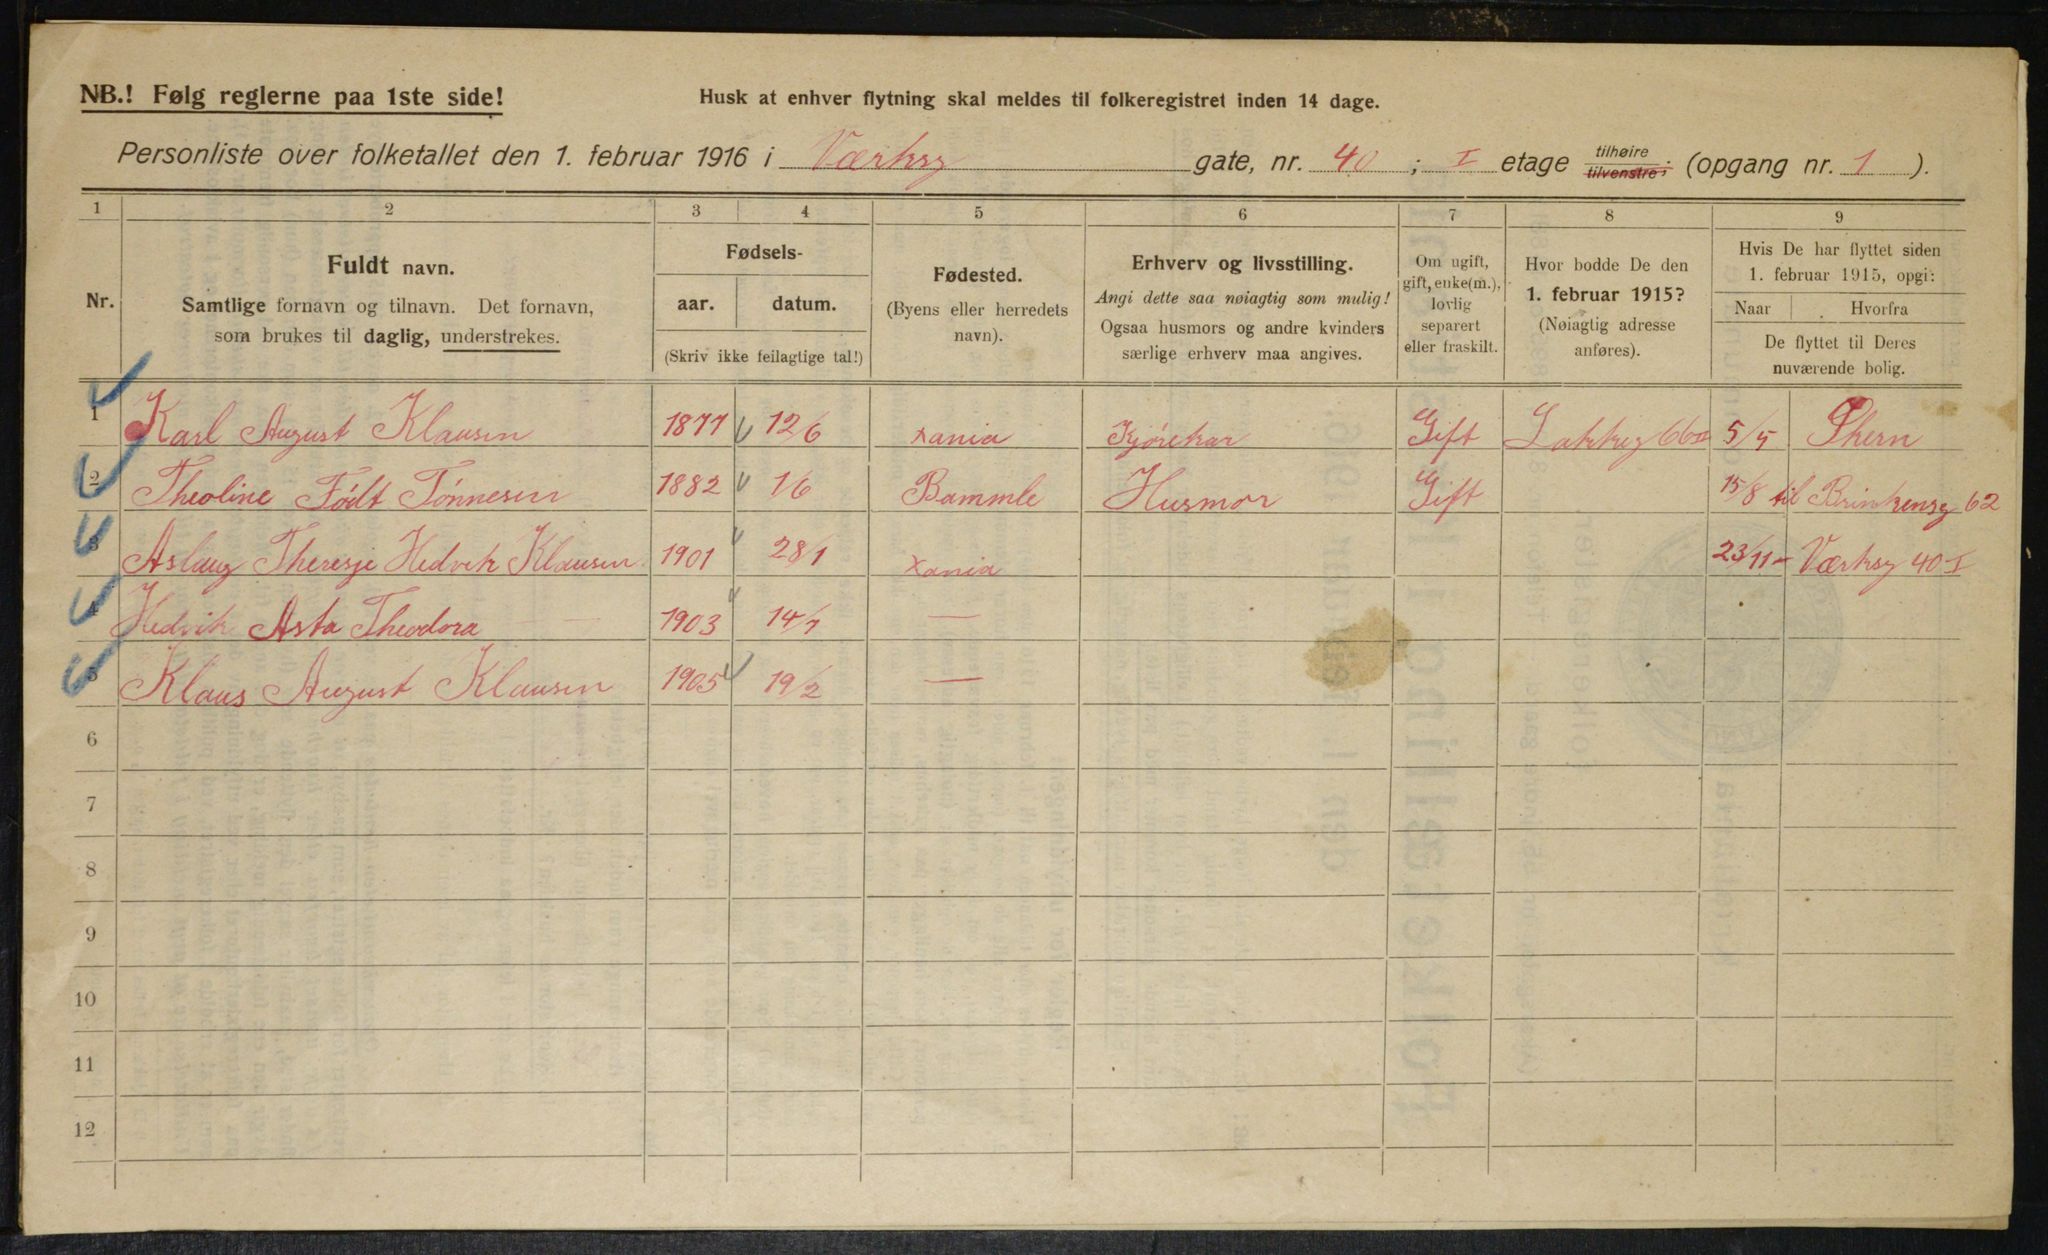 NB.! Følg reglerne paa 1ste side!
Husk at enhver flytning skal meldes til folkeregistret inden 14 dage.
Personliste over folketallet den 1. februar 1916 i Værksg gate, nr. 40 ; I etage tilhøire tilvenstre; (opgang nr. 1 ).
1 2 3 4 5 6 7 8 9
Nr.
Fuldt navn.
Samtlige fornavn og tilnavn. Det fornavn,
som brukes til daglig, understrekes.
Fødsels-
aar. datum.
(Skriv ikke feilagtige tal!)
Fødested.
(Byens eller herredets
navn).
Erhverv og livsstilling.
Angi dette saa nøiagtig som mulig!
Ogsaa husmors og andre kvinders
særlige erhverv maa angives.
Om ugift,
gift, enke(m.),
lovlig
separert
eller fraskilt.
Hvor bodde De den
1. februar 1915?
(Nøiagtig adresse
anføres).
Hvis De har flyttet siden
1. februar 1915, opgi:
Naar Hvorfra
De flyttet til Deres
nuværende bolig.
1 Karl August Klausen 1877 12/6 Xania Kjørekar Gift Lakkeg 66 II 5/5
2 Theoline Født Tønnesen 1882 1/6 Bammle Husmor Gift 15/8 til Brinkensg 62
3 Aslaug Theresje Hedvik Klausen 1901 28/1 Xania 23/11 - Værksg 40 I
4 Hedvik Asta Theodora — 1903 14/7 —
5 Klaus August Klausen 1905 19/2 —
6
7
8
9
10
11
12